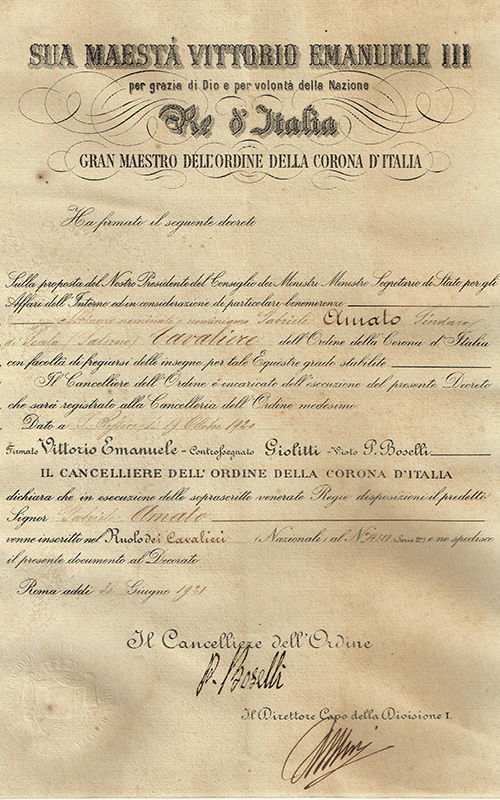 SUA MAESTÁ VITTORIO EMANUELE III
per grazia di Dio e per volontà della Nazione
Re d'Italia
GRAN MAESTRO DELL'ORDINE DELLA CORONA D'ITALIA
Ha firmato il seguente decreto
Sulla proposta del Nostro Presidente del Consiglio dei Ministri Ministro Segretario di Stato per gli
Affari dell'Interno ed in considerazione di particolari benemerenze
nominiamo Gabriele Amato Sindaco
di (Salerno) Cavaliere dell'Ordine della Corona d'Italia
con facoltà di fregiarsi delle insegne per tale Equestre grado stabilite
Il Cancelliere dell'Ordine è incaricato dell'esecuzione del presente Decreto
che sarà registrato alla Cancelleria dell'Ordine medesimo
Dato a S. Rossore li 19 Ottobre 1920
Firmato Vittorio Emanuele - Controfirmato Giolitti - Visto P. Boselli
IL CANCELLIERE DELL'ORDINE DELLA CORONA D'ITALIA
dichiara che in esecuzione delle soprascritte venerate Regie disposizioni il predetto
Signor Gabriele Amato
venne inscritto nel Ruolo dei Cavalieri (Nazionali al N° Serie 2ª) e ne spedisce
il presente documento al Decorato
Roma addì Giugno 1921
Il Cancelliere dell'Ordine
P. Boselli
Il Direttore Capo della Divisione I.